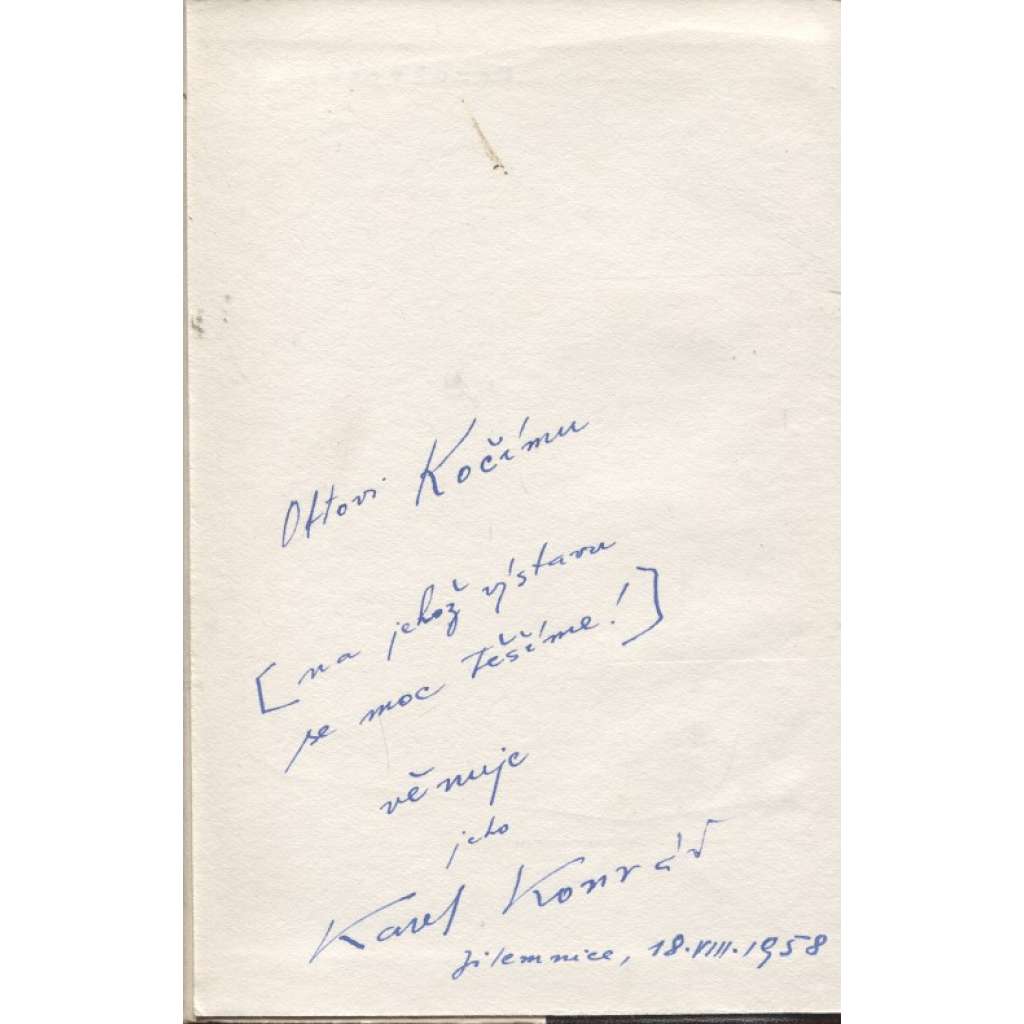 Ottovi Kočímu
[na jehož výstavu
se moc těšíme!]
věnuje
jeho
Karel Konrád
Jilemnice, 18.VIII.1958